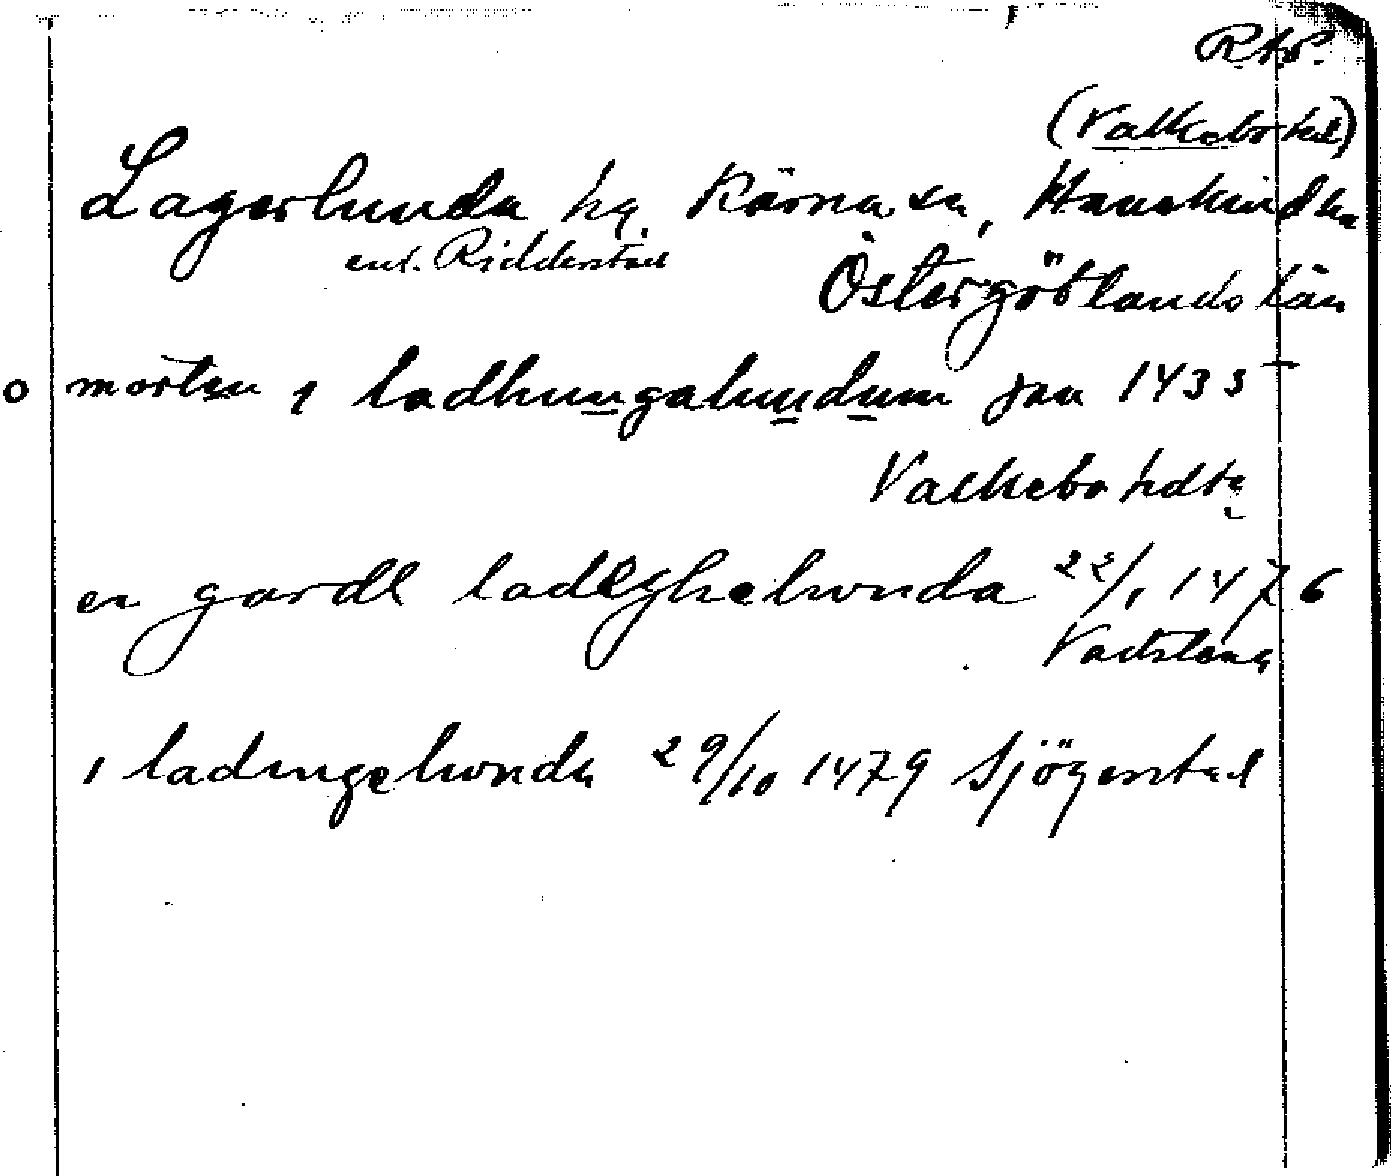 RAP.
(Valkebo hd)
Lagerlunda hg. Kärna sn, Hanekinds hd
enl. Ridderstad
Östergötlands län
o morten i ladhungalundum jan 1433
Valkebo hdtg
en gardh ladeghelwnda 22/1 1476
Vadstena
i ladingelwnda 29/10 1479 Sjögestad